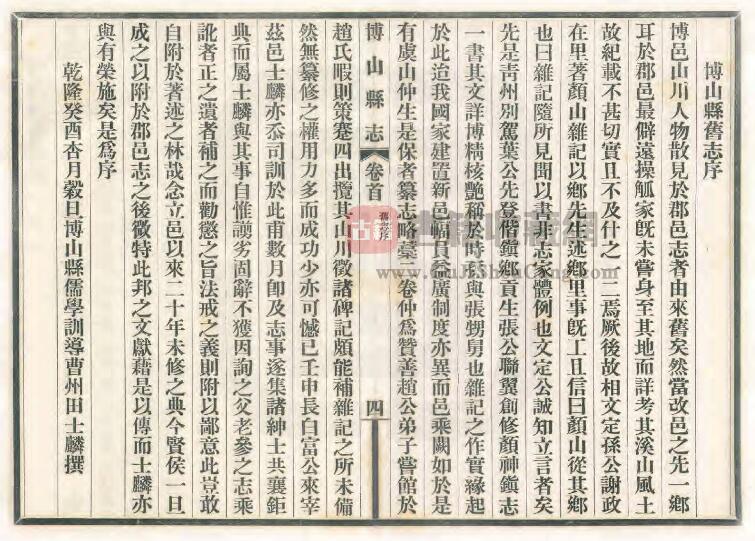 博山縣舊志序
博邑山川人物散見於郡邑志者由來舊矣然當改邑之先一鄉
耳於郡邑最僻遠操觚家旣未嘗身至其地而詳考其溪山風土
故紀載不甚切實且不及什之一二焉厥後故相文定孫公謝政
在里著顏山雜記以鄉先生述鄉里事旣工且信曰顏山從其鄉
也曰雜記隨所見聞以書非志家體例也文定公誠知立言者矣
先是靑州別駕葉公先登偕鎭鄉貢生張公聯翼創修顏神鎭志
一書其文詳博精核艷稱於時形與張甥舅也雜記之作實緣起
於此造我國家建置新邑幅員益廣制度亦異而邑乘闕如於是
有虞山仲生是保者纂志略藁二卷仲爲贊善趙公弟子嘗館於
博山縣志 卷首 四
趙氏暇則策蹇四出攬其山川徵諸碑記頗能補雜記之所未備
然無纂修之權用力多而成功少亦可憾已壬申長白富公來宰
茲邑士麟亦忝司訓於此甫數月卽及志事遂集諸紳士共襄鉅
典而屬士麟與其事自惟譾劣固辭不獲因詢之父老參之志乘
訛者正之遺者補之而勸懲之旨法戒之義則附以鄙意此豈敢
自附於著述之林哉念立邑以來二十年未修之典今賢侯一旦
成之以附於郡邑志之後徵特此邦之文獻藉是以傳而士麟亦
與有榮施矣是爲序
乾隆癸酉杏月穀旦博山縣儒學訓導曹州田士麟撰
古籍
www.GuJiShuCang.Com